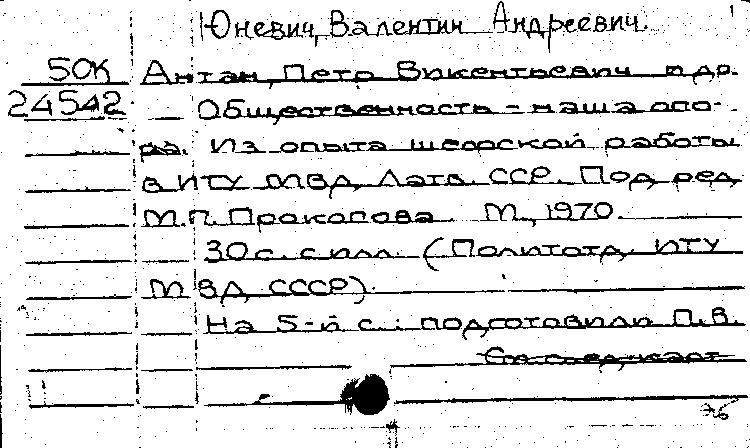 Юневич, Валентин Андреевич.
50К Антан, Петр Викентьевич и др.
24542 Общественность - наша опо-
ра. Из опыта шефской работы
в ИТУ МВД Латв. ССР. Под ред.
М.П. Прокопова. М., 1970.
30 с. с илл. (Политотд. ИТУ
МВД СССР)
На 5-й с.: подготовили П.В.
См. след. карт.